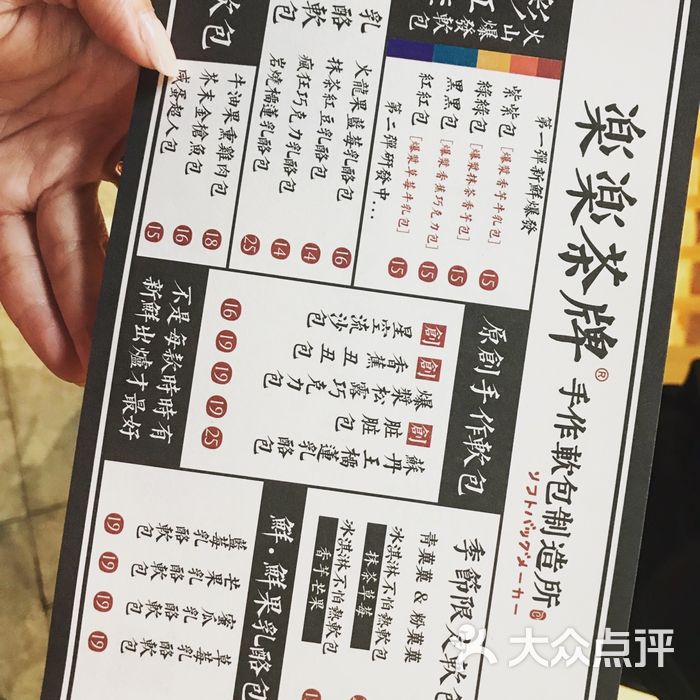 楽楽茶牌®
手作軟包制造所
ソフトパックメーカー
火山爆發
第一彈新鮮爆發
紫紫包[爆漿香芋牛乳包] 15
綠綠包[爆漿抹茶香芋包] 15
黑黑包[爆漿香蕉巧克力包] 15
紅紅包[爆漿草莓牛乳包] 15
第二彈研發中...
乳酪軟包
火龍果藍莓乳酪包 16
抹茶紅豆乳酪包 14
瘋狂巧克力乳酪包 14
岩燒榴蓮乳酪包 25
軟包
牛油果熏雞肉包 18
芥末金槍魚包 16
咸蛋超人包 15
原創手作軟包
創 星空流沙包 16
創 香蕉丑丑包 19
爆漿松露巧克力 19
創 脏脏包 19
蘇丹王榴蓮乳酪包 25
不是每款時時有
新鮮出爐才最好
季節限定軟包
青菓菓&粉菓菓
冰淇淋不怕熱軟包
抹茶草莓
冰淇淋不怕熱軟包
香芋芒果
鮮·鮮果乳酪包
藍莓乳酪軟包 19
芒果乳酪軟包 19
蜜瓜乳酪軟包 19
草莓乳酪軟包 19
大众点评